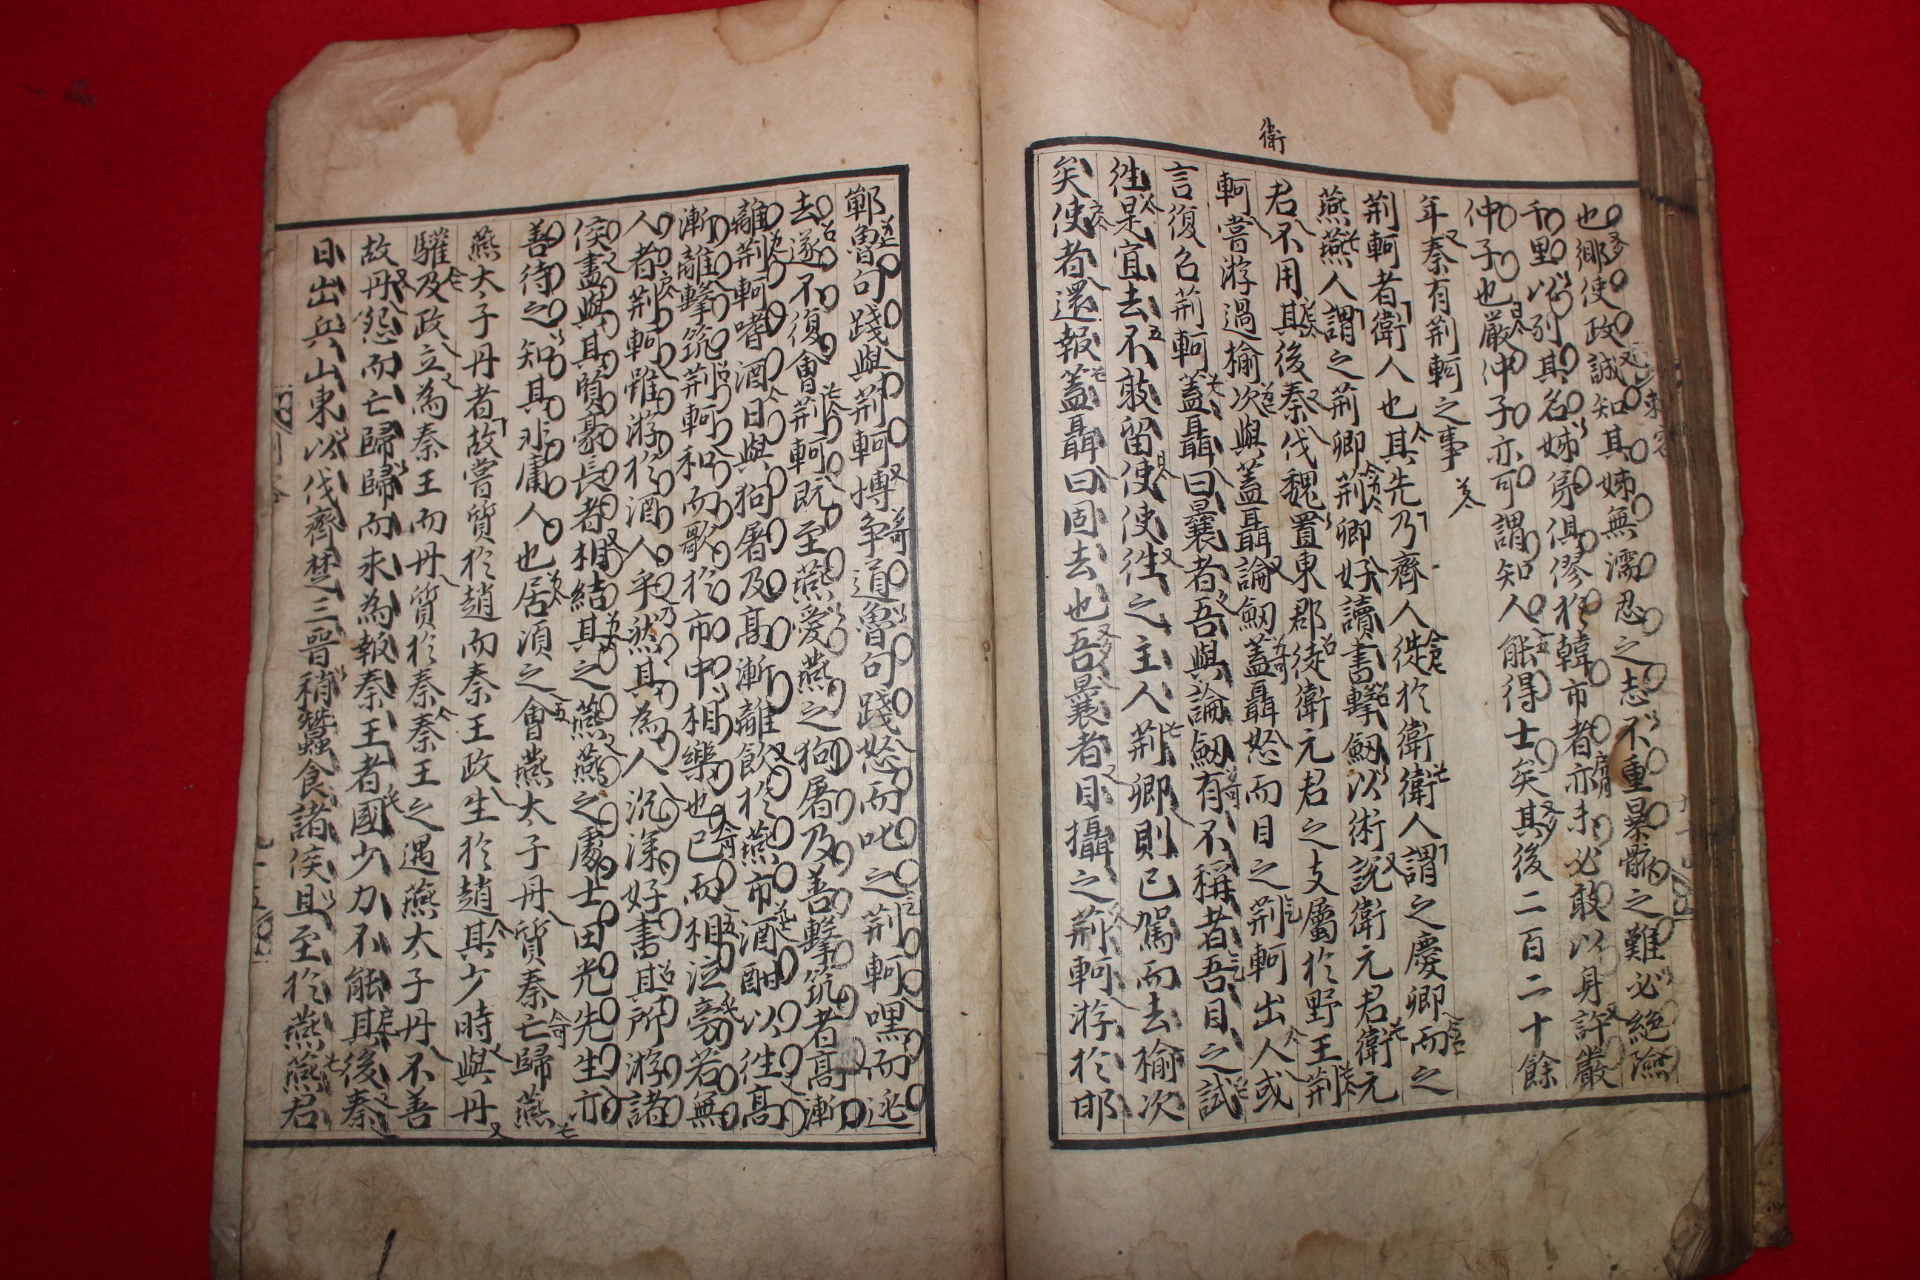 衛
也鄉使政誠知其姊無濡忍之志不重暴骸之難必絕險
千里以列其名姊弟俱僇於韓市者亦未必敢以身許嚴
仲子也嚴仲子亦可謂知人能得士矣其後二百二十餘
年秦有荊軻之事
荊軻者衛人也其先乃齊人徙於衛衛人謂之慶卿而之
燕燕人謂之荊卿荊卿好讀書擊劒以術說衛元君衛元
君不用其後秦伐魏置東郡徙衛元君之支屬於野王荊
軻嘗游過榆次與蓋聶論劒蓋聶怒而目之荊軻出人或
言復召荊軻蓋聶曰曩者吾與論劒有不稱者吾目之試
徃是宜去不敢留使使徃之主人荊卿則已駕而去榆次
矣使者還報蓋聶曰固去也吾曩者目攝之荊軻游於邯
鄲魯句踐與荊軻博爭道魯句踐怒而叱之荊軻嘿而逃
去遂不復會荊軻既至燕愛燕之狗屠及善擊筑者高漸
離荊軻嗜酒日與狗屠及高漸離飲於燕市酒酣以徃高
漸離擊筑荊軻和而歌於市中相樂也已而相泣旁若無
人者荊軻雖游於酒人乎然其為人沉深好書其所游諸
侯盡與其賢豪長者相結其之燕燕之處士田光先生亦
善待之知其非庸人也居頃之會燕太子丹質秦亡歸燕
燕太子丹者故嘗質於趙而秦王政生於趙其少時與丹
驩及政立為秦王而丹質於秦秦王之遇燕太子丹不善
故丹怨而亡歸歸而求為報秦王者國少力不能其後秦
日出兵山東以伐齊楚三晉稍蠶食諸侯且至於燕燕君